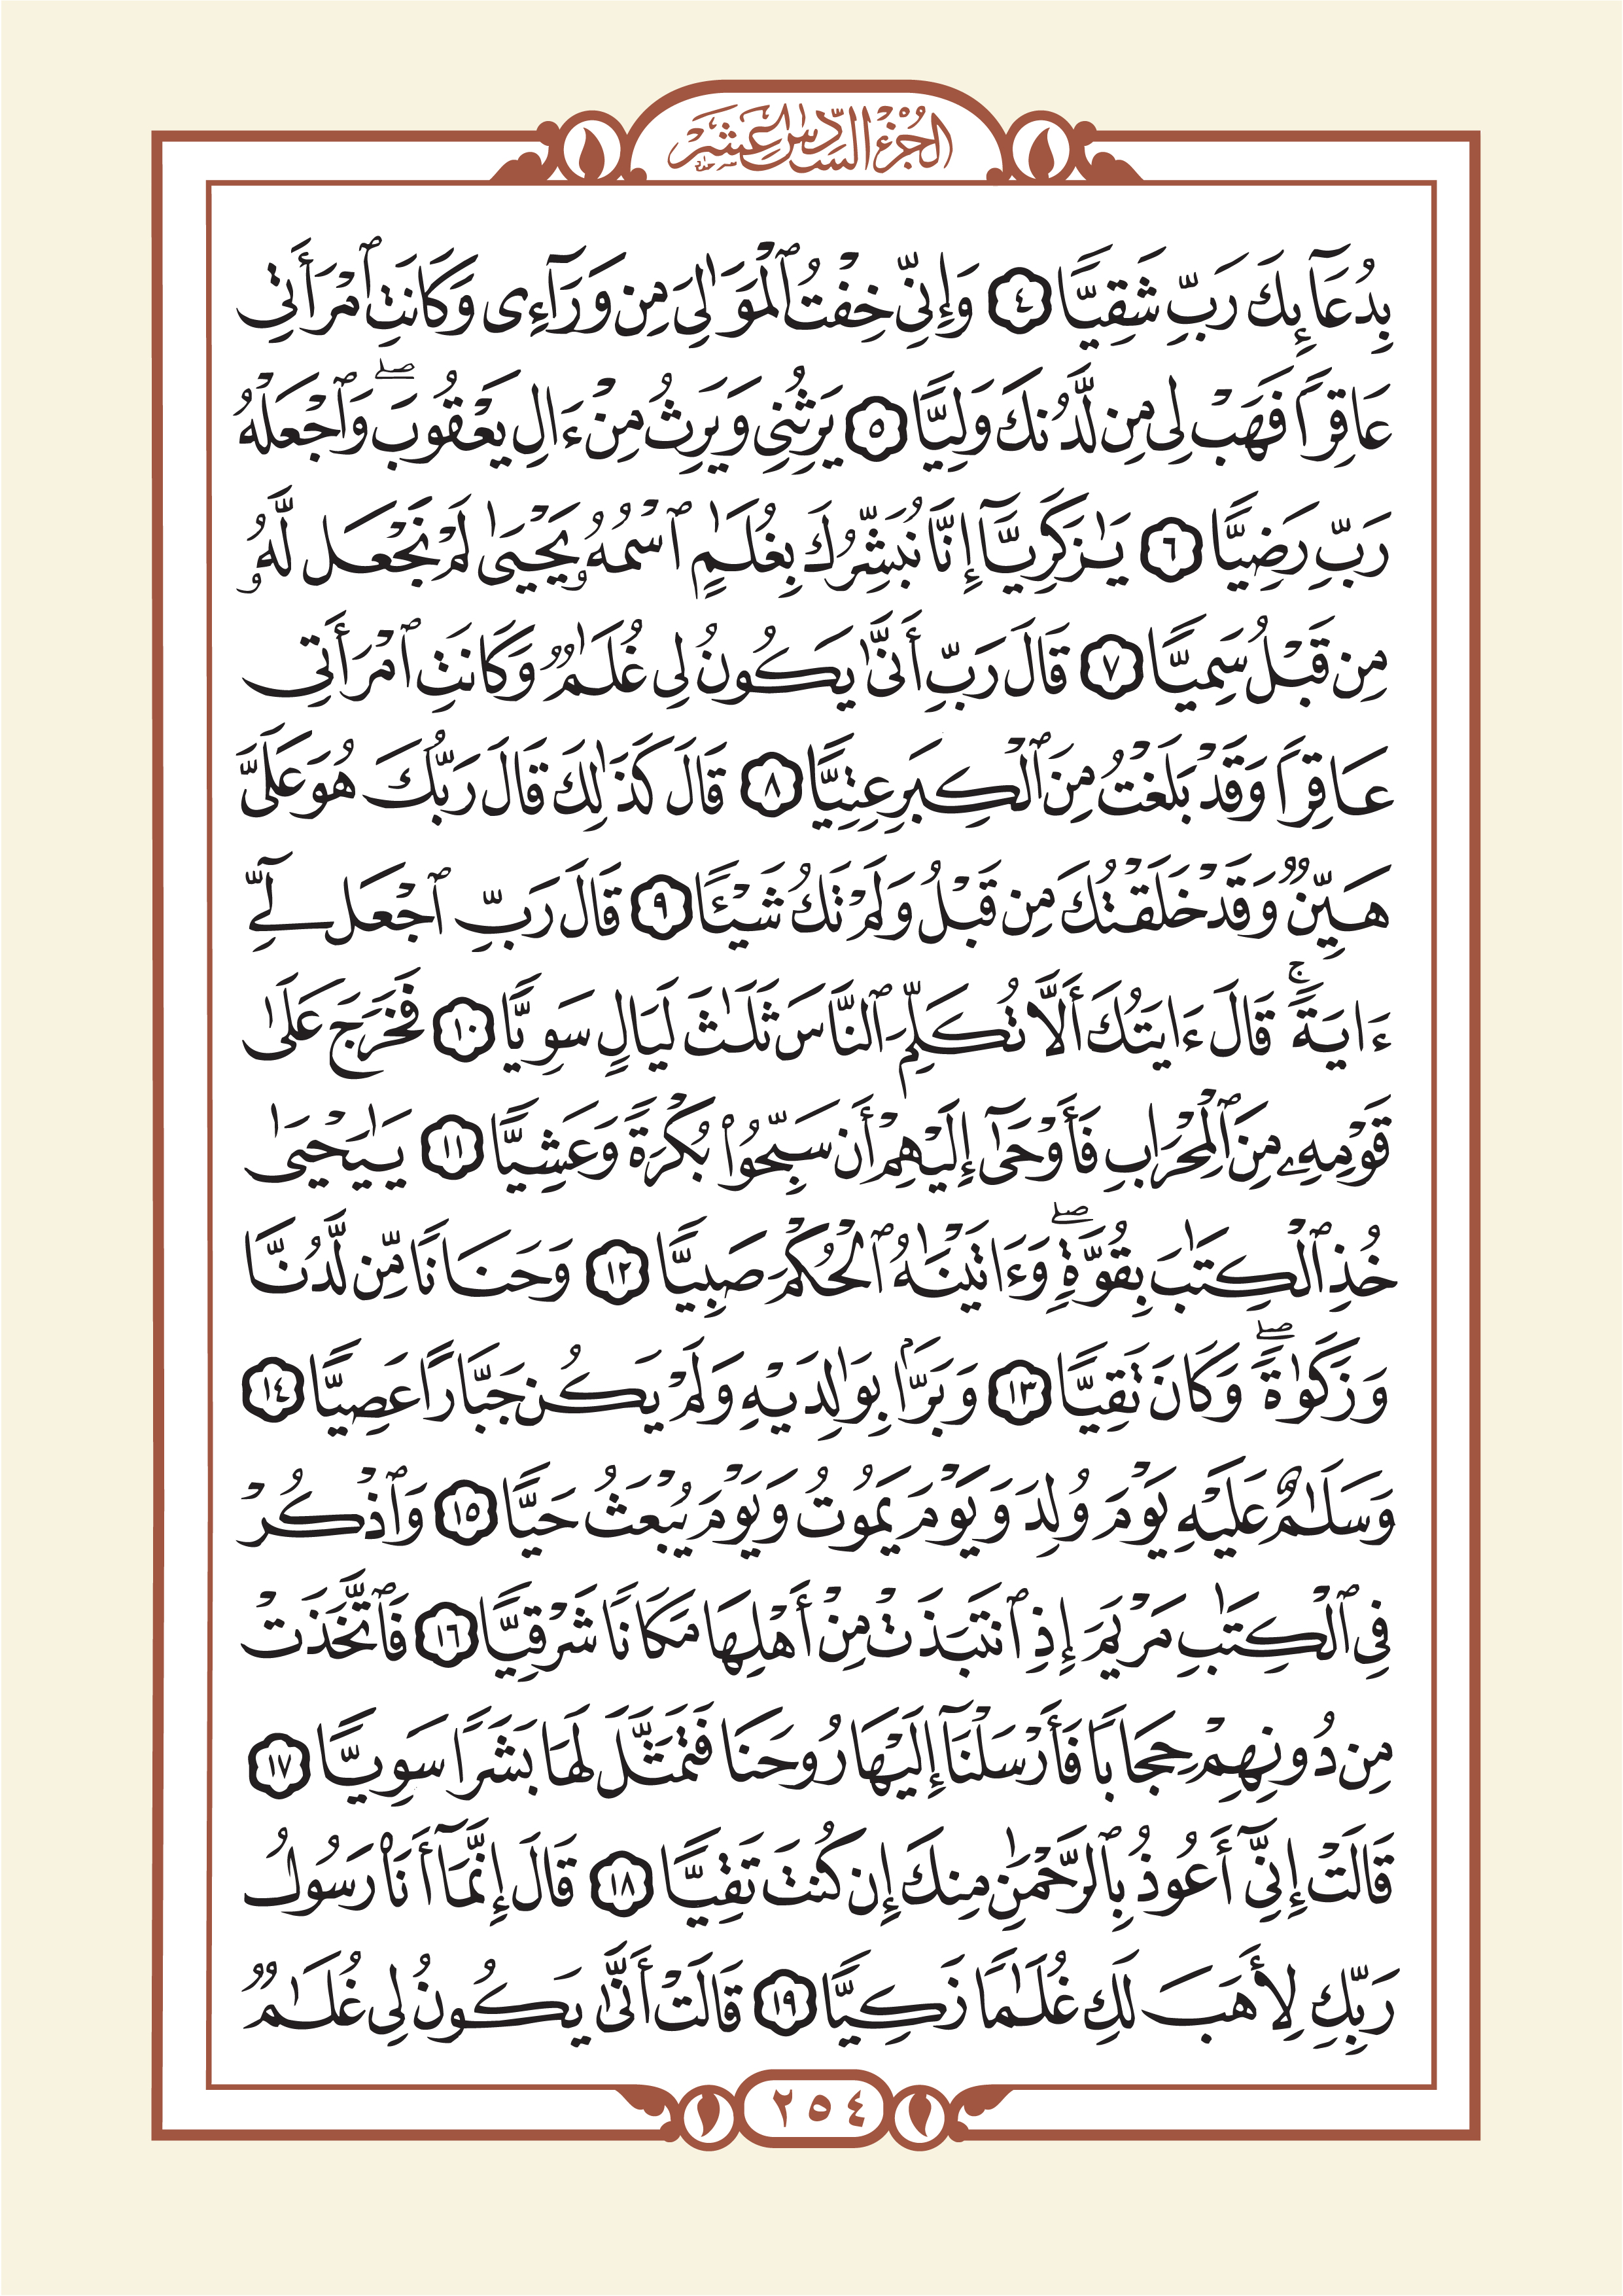 الجزء السادس عشر
بِدُعَآئِكَ رَبِّ شَقِيًّا ٤ وَإِنِّي خِفْتُ ٱلْمَوَٰلِيَ مِن وَرَآءِى وَكَانَتِ ٱمْرَأَتِي
عَاقِرًا فَهَبْ لِي مِن لَّدُنكَ وَلِيًّا ٥ يَرِثُنِي وَيَرِثُ مِنْ ءَالِ يَعْقُوبَ ۖ وَٱجْعَلْهُ
رَبِّ رَضِيًّا ٦ يَٰزَكَرِيَّآ إِنَّا نُبَشِّرُكَ بِغُلَٰمٍ ٱسْمُهُۥ يَحْيَىٰ لَمْ نَجْعَل لَّهُۥ
مِن قَبْلُ سَمِيًّا ٧ قَالَ رَبِّ أَنَّىٰ يَكُونُ لِي غُلَٰمٌ وَكَانَتِ ٱمْرَأَتِي
عَاقِرًا وَقَدْ بَلَغْتُ مِنَ ٱلْكِبَرِ عِتِيًّا ٨ قَالَ كَذَٰلِكَ قَالَ رَبُّكَ هُوَ عَلَيَّ
هَيِّنٌ وَقَدْ خَلَقْتُكَ مِن قَبْلُ وَلَمْ تَكُ شَيْـًٔا ٩ قَالَ رَبِّ ٱجْعَل لِّيٓ
ءَايَةً ۚ قَالَ ءَايَتُكَ أَلَّا تُكَلِّمَ ٱلنَّاسَ ثَلَٰثَ لَيَالٍ سَوِيًّا ١٠ فَخَرَجَ عَلَىٰ
قَوْمِهِۦ مِنَ ٱلْمِحْرَابِ فَأَوْحَىٰٓ إِلَيْهِمْ أَن سَبِّحُوا۟ بُكْرَةً وَعَشِيًّا ١١ يَٰيَحْيَىٰ
خُذِ ٱلْكِتَٰبَ بِقُوَّةٍ ۖ وَءَاتَيْنَٰهُ ٱلْحُكْمَ صَبِيًّا ١٢ وَحَنَانًا مِّن لَّدُنَّا
وَزَكَوٰةً ۖ وَكَانَ تَقِيًّا ١٣ وَبَرًّۢا بِوَٰلِدَيْهِ وَلَمْ يَكُن جَبَّارًا عَصِيًّا ١٤
وَسَلَٰمٌ عَلَيْهِ يَوْمَ وُلِدَ وَيَوْمَ يَمُوتُ وَيَوْمَ يُبْعَثُ حَيًّا ١٥ وَٱذْكُرْ
فِي ٱلْكِتَٰبِ مَرْيَمَ إِذِ ٱنتَبَذَتْ مِنْ أَهْلِهَا مَكَانًا شَرْقِيًّا ١٦ فَٱتَّخَذَتْ
مِن دُونِهِمْ حِجَابًا فَأَرْسَلْنَآ إِلَيْهَا رُوحَنَا فَتَمَثَّلَ لَهَا بَشَرًا سَوِيًّا ١٧
قَالَتْ إِنِّيٓ أَعُوذُ بِٱلرَّحْمَٰنِ مِنكَ إِن كُنتَ تَقِيًّا ١٨ قَالَ إِنَّمَآ أَنَا۠ رَسُولُ
رَبِّكِ لِأَهَبَ لَكِ غُلَٰمًا زَكِيًّا ١٩ قَالَتْ أَنَّىٰ يَكُونُ لِي غُلَٰمٌ
٢٥٤